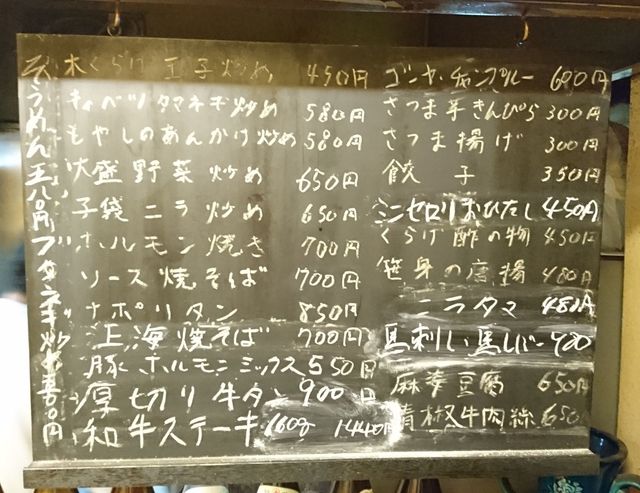 木くらげ玉子炒め 450円
キャベツタマネギ炒め 580円
もやしのあんかけ炒め 580円
大盛野菜炒め 650円
子袋ニラ炒め 650円
ホルモン焼き 700円
ソース焼そば 700円
ナポリタン 850円
上海焼そば 700円
豚ホルモンミックス 550円
厚切り牛タン 900円
和牛ステーキ 160g 1440円
ゴーヤチャンプルー 600円
さつま芋きんぴら 300円
さつま揚げ 300円
餃子 350円
ミニセロリおひたし 450円
くらげ酢の物 450円
笹身の唐揚 480円
ニラタマ 480円
馬刺し、馬レバー 900
麻婆豆腐 650円
青椒牛肉絲 650